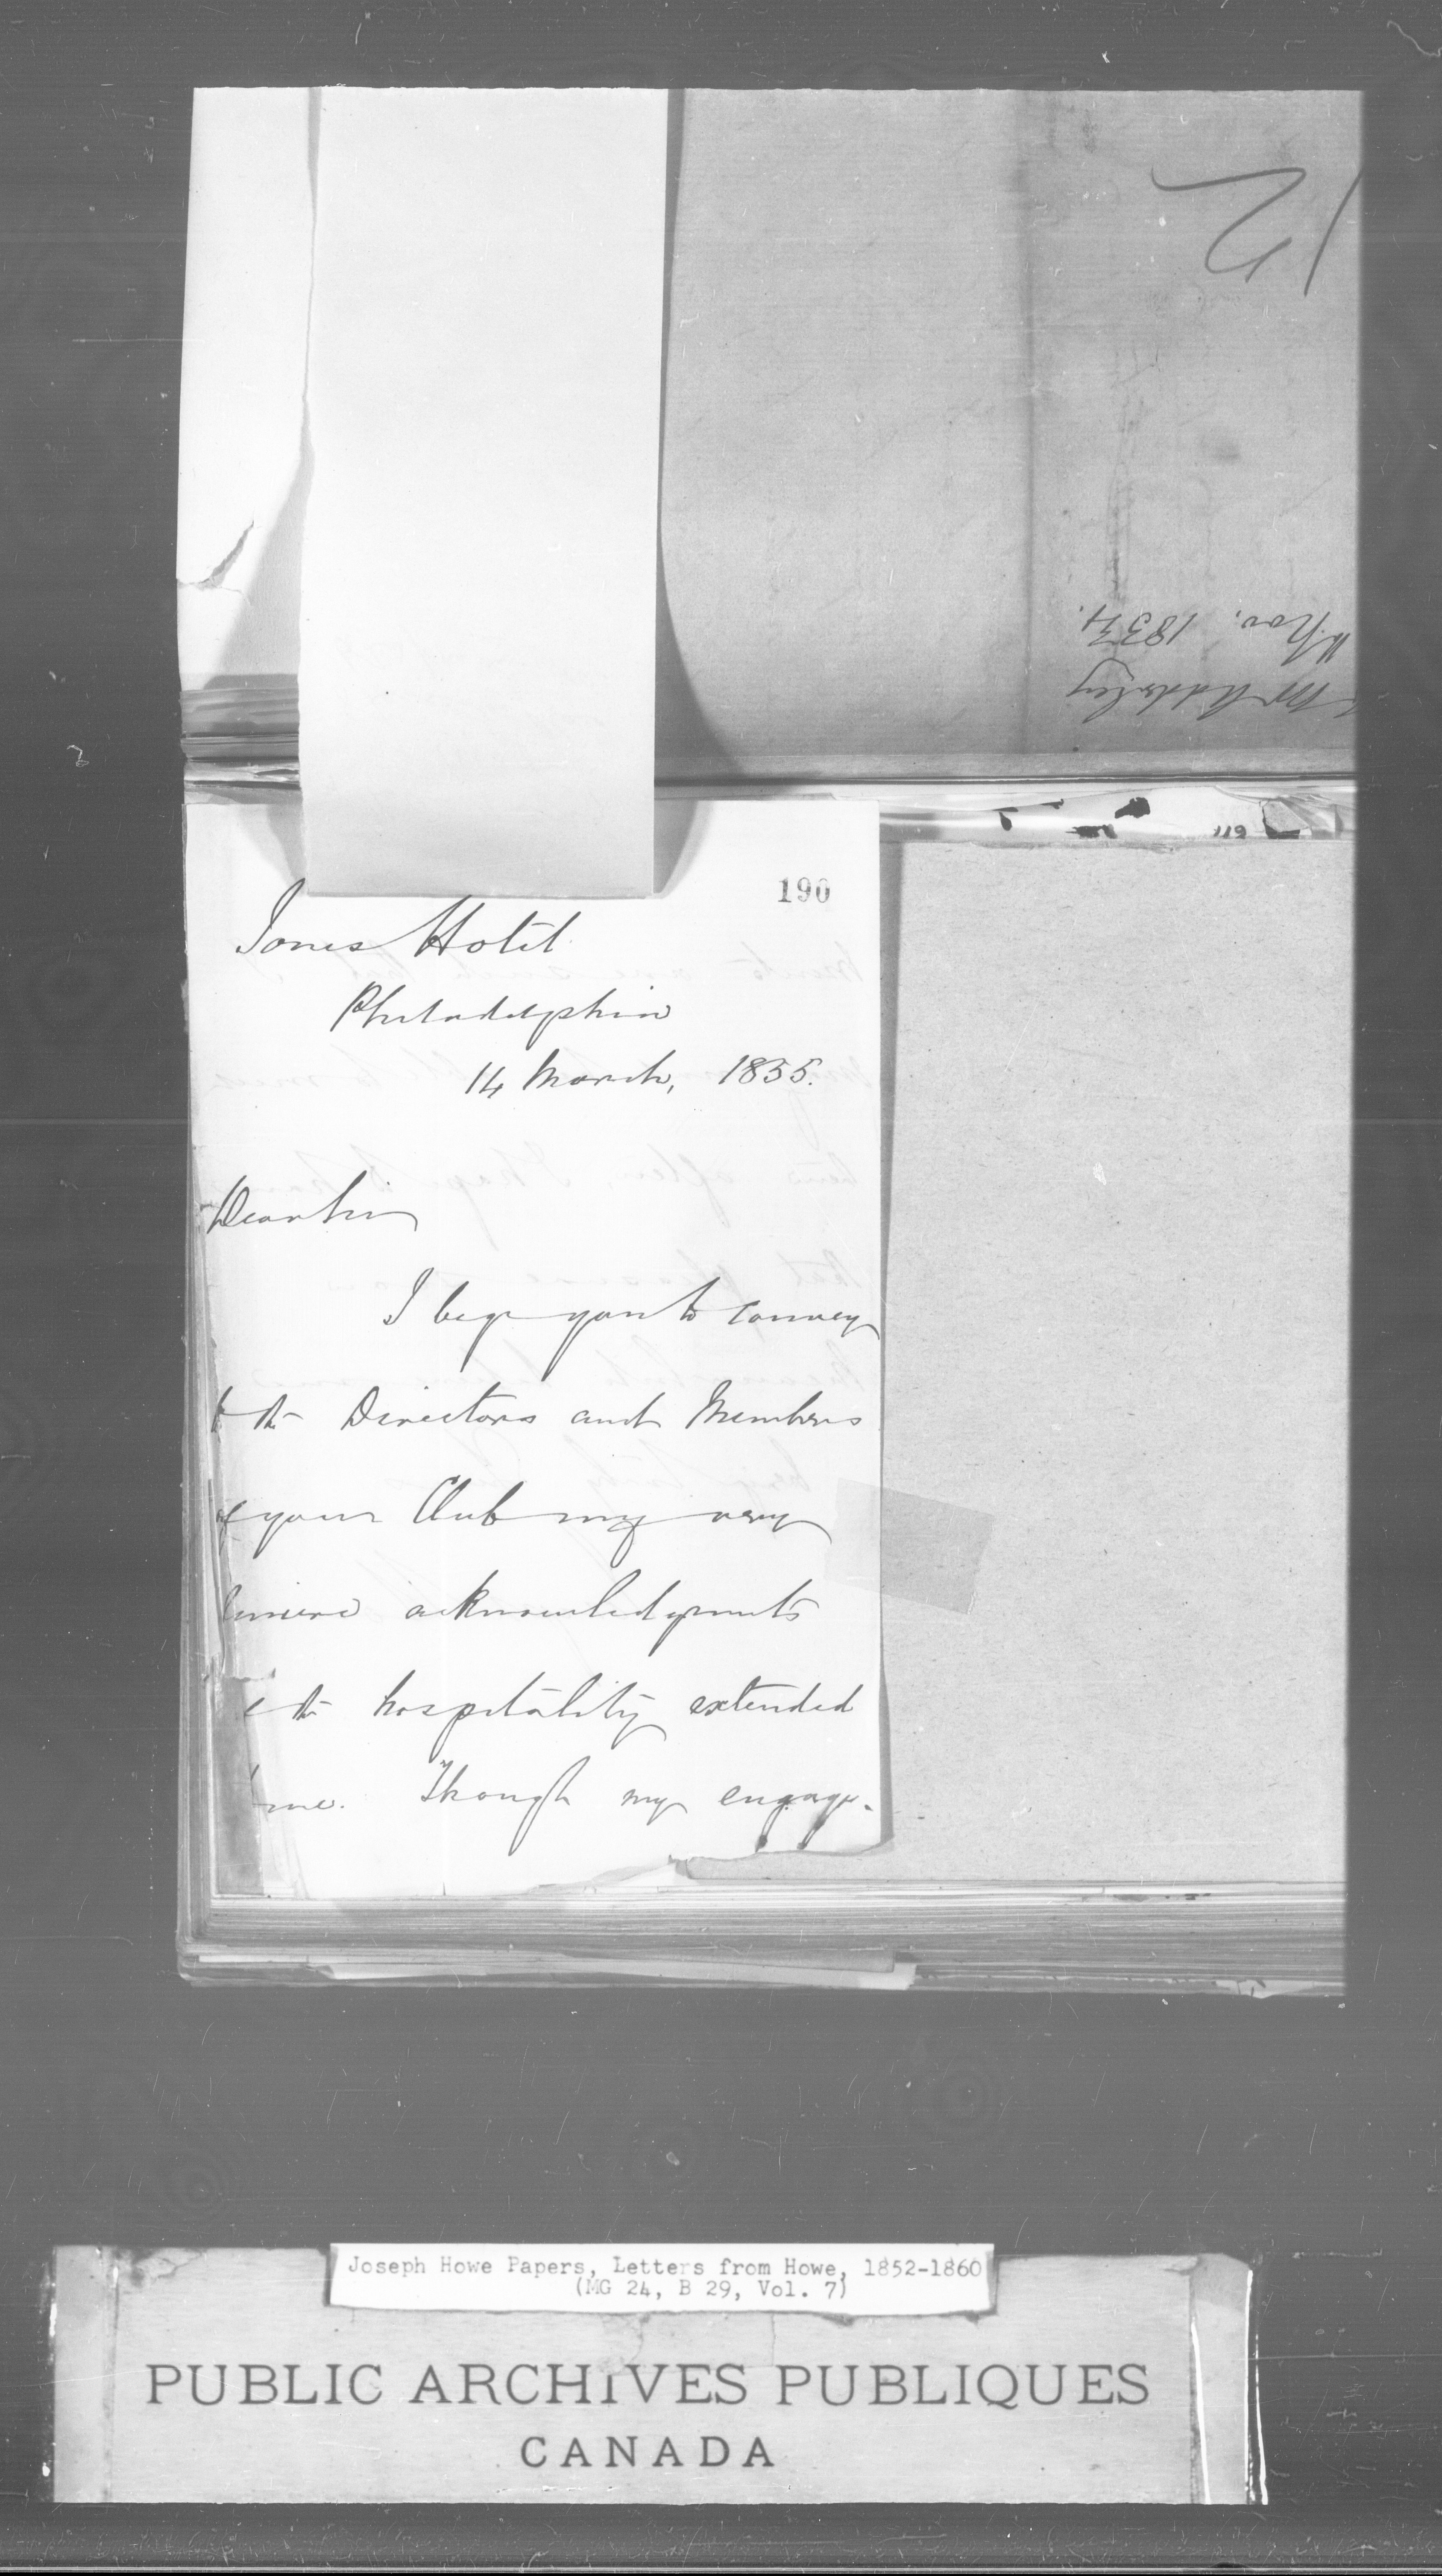 12
Mr Adderley
Nov. 1854.
190
Jones Hotel
Philadelphia
14 March, 1855.
Dear Sir
I beg you to convey
to the Directors and Members
of your Club my very
sincere acknowledgments
the hospitality extended
me. Though my engage-
Joseph Howe Papers, Letters from Howe, 1852-1860
(MG 24, B 29, Vol. 7)
PUBLIC ARCHIVES PUBLIQUES
CANADA